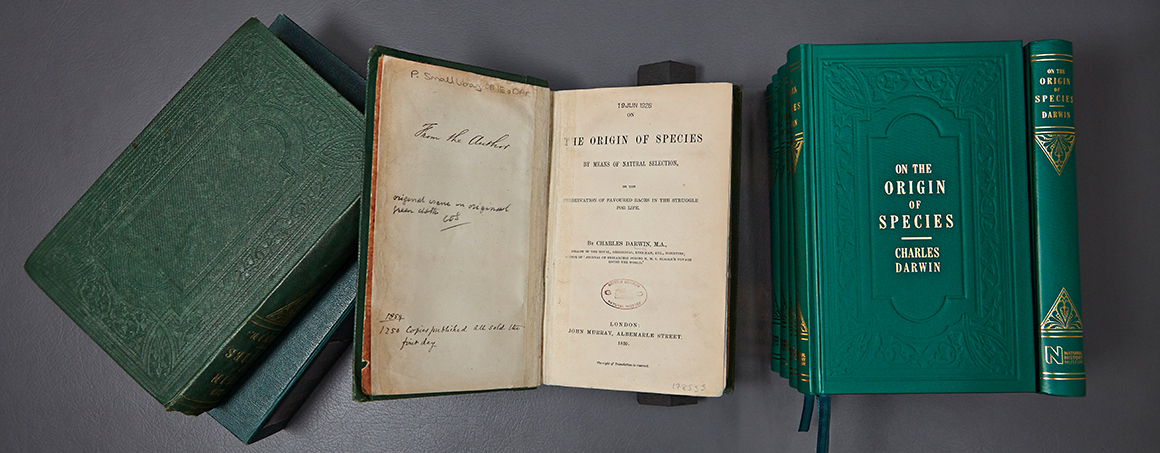 P. Small Library
From the Author
original issue in original
green cloth
1859
1250 Copies published all sold the
first day.
19 JUN 1926
ON
THE ORIGIN OF SPECIES
BY MEANS OF NATURAL SELECTION,
OR THE
PRESERVATION OF FAVOURED RACES IN THE STRUGGLE
FOR LIFE.
By CHARLES DARWIN, M.A.,
FELLOW OF THE ROYAL, GEOLOGICAL, LINNÆAN, ETC., SOCIETIES;
LONDON:
JOHN MURRAY, ALBEMARLE STREET.
1859.
The right of Translation is reserved.
ON THE
ORIGIN
OF
SPECIES
CHARLES
DARWIN
ON THE
ORIGIN
OF
SPECIES
DARWIN
N NATURAL
HISTORY
MUSEUM